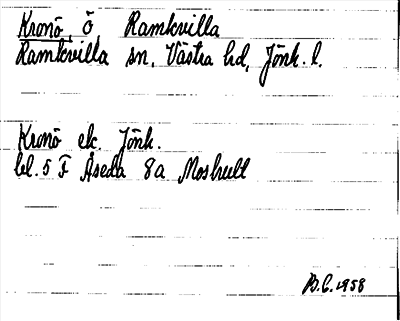 Kronö, ö, Ramkvilla
Ramkvilla sn, Västra hd, Jönk. l.
Kronö ek. Jönk.
bl. 5 F Åseda 8a Moshult
B.C. 1958